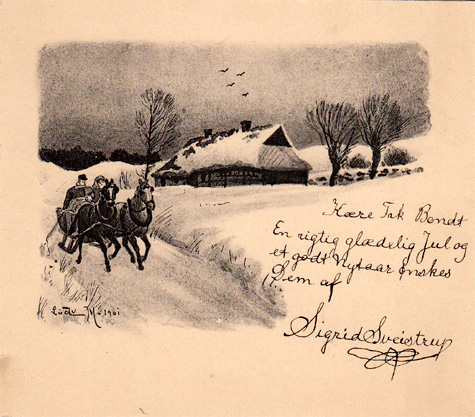 Kære Tak Bendt
En rigtig glædelig Jul og
et godt Nytaar ønskes
Dem af
Sigrid Sveistrup
1901